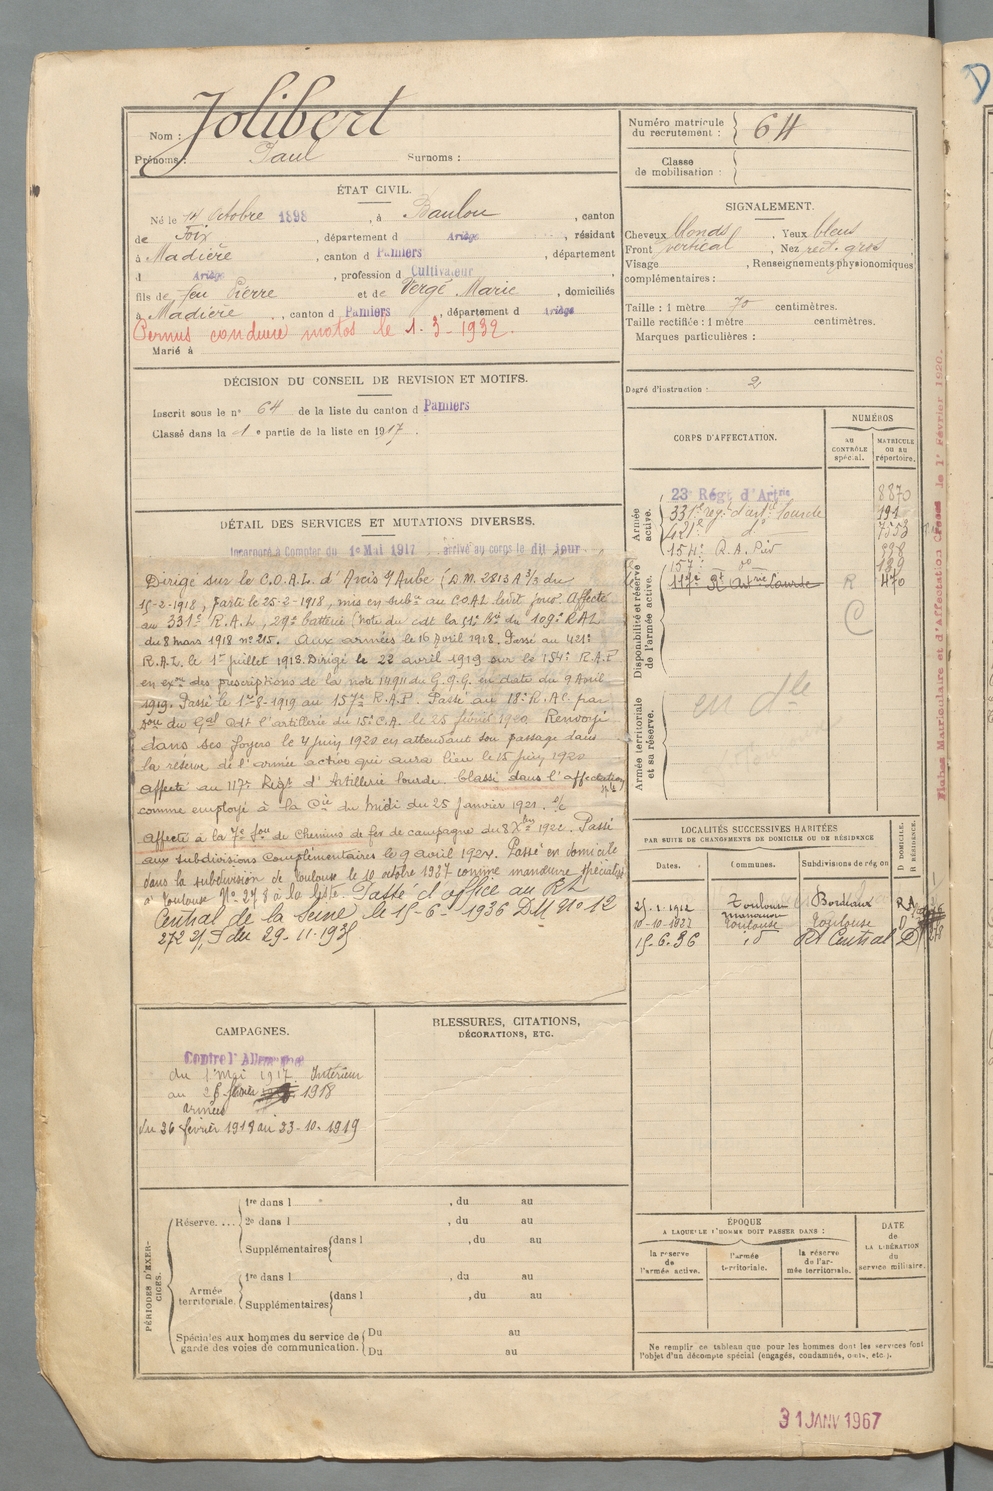 Nom : Jolibert
Prénoms : Paul Surnoms :
ÉTAT CIVIL.
Né le 14 Octobre 1898, à Baulou, canton
de Foix, département d Ariège, résidant
à Madière, canton d Pamiers, département
d Ariège, profession d Cultivateur,
fils de feu Pierre et de Vergé Marie, domiciliés
à Madière, canton d Pamiers, département d Ariège
Permis conduire motos le 1-3-1932.
Marié à
DÉCISION DU CONSEIL DE REVISION ET MOTIFS.
Inscrit sous le n° 64 de la liste du canton d Pamiers
Classé dans la 1e partie de la liste en 1917.
DÉTAIL DES SERVICES ET MUTATIONS DIVERSES.
Incorporé à Compter du 1er Mai 1917 arrivé au corps le dit jour
Dirigé sur le C.O.A.L. d'Arcis s/Aube (D.M. 2813 A 3/3 du
15-2-1918, parti le 25-2-1918, mis en sub. au C.O.A.L. ledit jour. Affecté
au 331e R.A.L, 29e batterie (Note du cdt la 51e Bd du 109e RAL
du 8 mars 1918 n° 215. Aux armées le 16 Avril 1918. Passé au 421e
R.A.L. le 1er juillet 1918. Dirigé le 22 avril 1919 sur le 154e R.A.P
en exon des prescriptions de la note 14911 du G.Q.G. en date du 9 Avril
1919. Passé le 1er-8-1919 au 157e R.A.P. Passé au 18e R.A.C. par
du Gal Cdt l'artillerie du 15e C.A. le 25 février 1920 Renvoyé
dans ses foyers le 4 juin 1920 en attendant son passage dans
la réserve de l'armée active qui aura lieu le 15 juin 1920
Affecté au 117e Régt d'Artillerie lourde. Classé dans l'affectation
comme employé à la Cie du Midi du 25 Janvier 1921.
Affecté à la 7e Son de Chemins de fer de campagne du 8 Xbre 1922. Passé
aux subdivisions Complémentaires le 9 avril 1924. Passé en domicile
dans la subdivision de Toulouse le 10 octobre 1927 comme manœuvre spécialisé
à Toulouse N° 278 à la liste. Passé d'office au Rt
Central de la Seine le 15-6-1936 DM N° 12
272 du 29-11-1935
CAMPAGNES.
Contre l'Allemagne
du 1 mai 1917 Intérieur
au 25 février 1918
armées
du 26 février 1918 au 23-10-1919
BLESSURES, CITATIONS,
DÉCORATIONS, ETC.
PÉRIODES D'EXERCICES.
Réserve.... 1re dans l , du au
2e dans l , du au
Supplémentaires dans l , du au
Armée territoriale. 1re dans l , du au
Supplémentaires dans l , du au
Spéciales aux hommes du service de garde des voies de communication. Du au
Du au
Numéro matricule
du recrutement : 64
Classe
de mobilisation :
SIGNALEMENT.
Cheveux blonds, Yeux bleus
Front vertical, Nez rect. gros
Visage , Renseignements physionomiques
complémentaires :
Taille : 1 mètre 70 centimètres.
Taille rectifiée : 1 mètre centimètres.
Marques particulières :
Degré d'instruction : 2
CORPS D'AFFECTATION.
NUMÉROS
AU CONTRÔLE spécial.
MATRICULE ou au répertoire.
Armée active.
23e Régt d'Artrie 8870
331e rég. d'art. lourde 191
421e do 7553
154e R.A. Pied
157e do
Disponibilité et réserve de l'armée active.
117e Rt Artrie Lourde R 470
C
Armée territoriale et sa réserve.
en dle
LOCALITÉS SUCCESSIVES HABITÉES
PAR SUITE DE CHANGEMENTS DE DOMICILE OU DE RÉSIDENCE
Dates. Communes. Subdivisions de région
D DOMICILE.
R RÉSIDENCE.
Toulouse Bordeaux RA
10-10-1927 Toulouse Toulouse D
15-6-36 do Rt Central D
ÉPOQUE
A LAQUELLE L'HOMME DOIT PASSER DANS :
la réserve de l'armée active.
l'armée territoriale.
la réserve de l'armée territoriale.
DATE DE LA LIBÉRATION du service militaire.
Ne remplir ce tableau que pour les hommes dont les services font
l'objet d'un décompte spécial (engagés, condamnés, omis, etc.).
31 JANV 1967